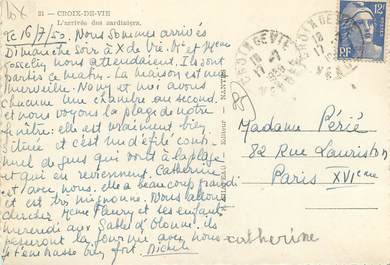 21 - CROIX-DE-VIE
L'arrivée des sardiniers
Le 16/7/50. Nous sommes arrivés
Dimanche soir à X de Vie. Mr et Mme
nous attendaient. Ils sont
partis ce matin. La maison est une
merveille. Nany et moi avons
chacune une chambre au second
et nous voyons la plage de notre
fenêtre: elle est vraiment bien
située et c'est un défilé conti-
nuel de gens qui vont à la plage
et qui en reviennent. Catherine
est avec nous. elle a beaucoup grandi
et est très mignonne. Nous allons
chercher Mme Fleury et ses enfants
mercredi aux Sables d'Olonne. ils
passeront la journée avec nous.
je t'embrasse bien fort. Nicole
catherine
Editeur - NANTES
CROIX DE VIE
17-7
1950
VENDÉE
12F
Madame Périé
82 Rue Lauriston
Paris XVIème